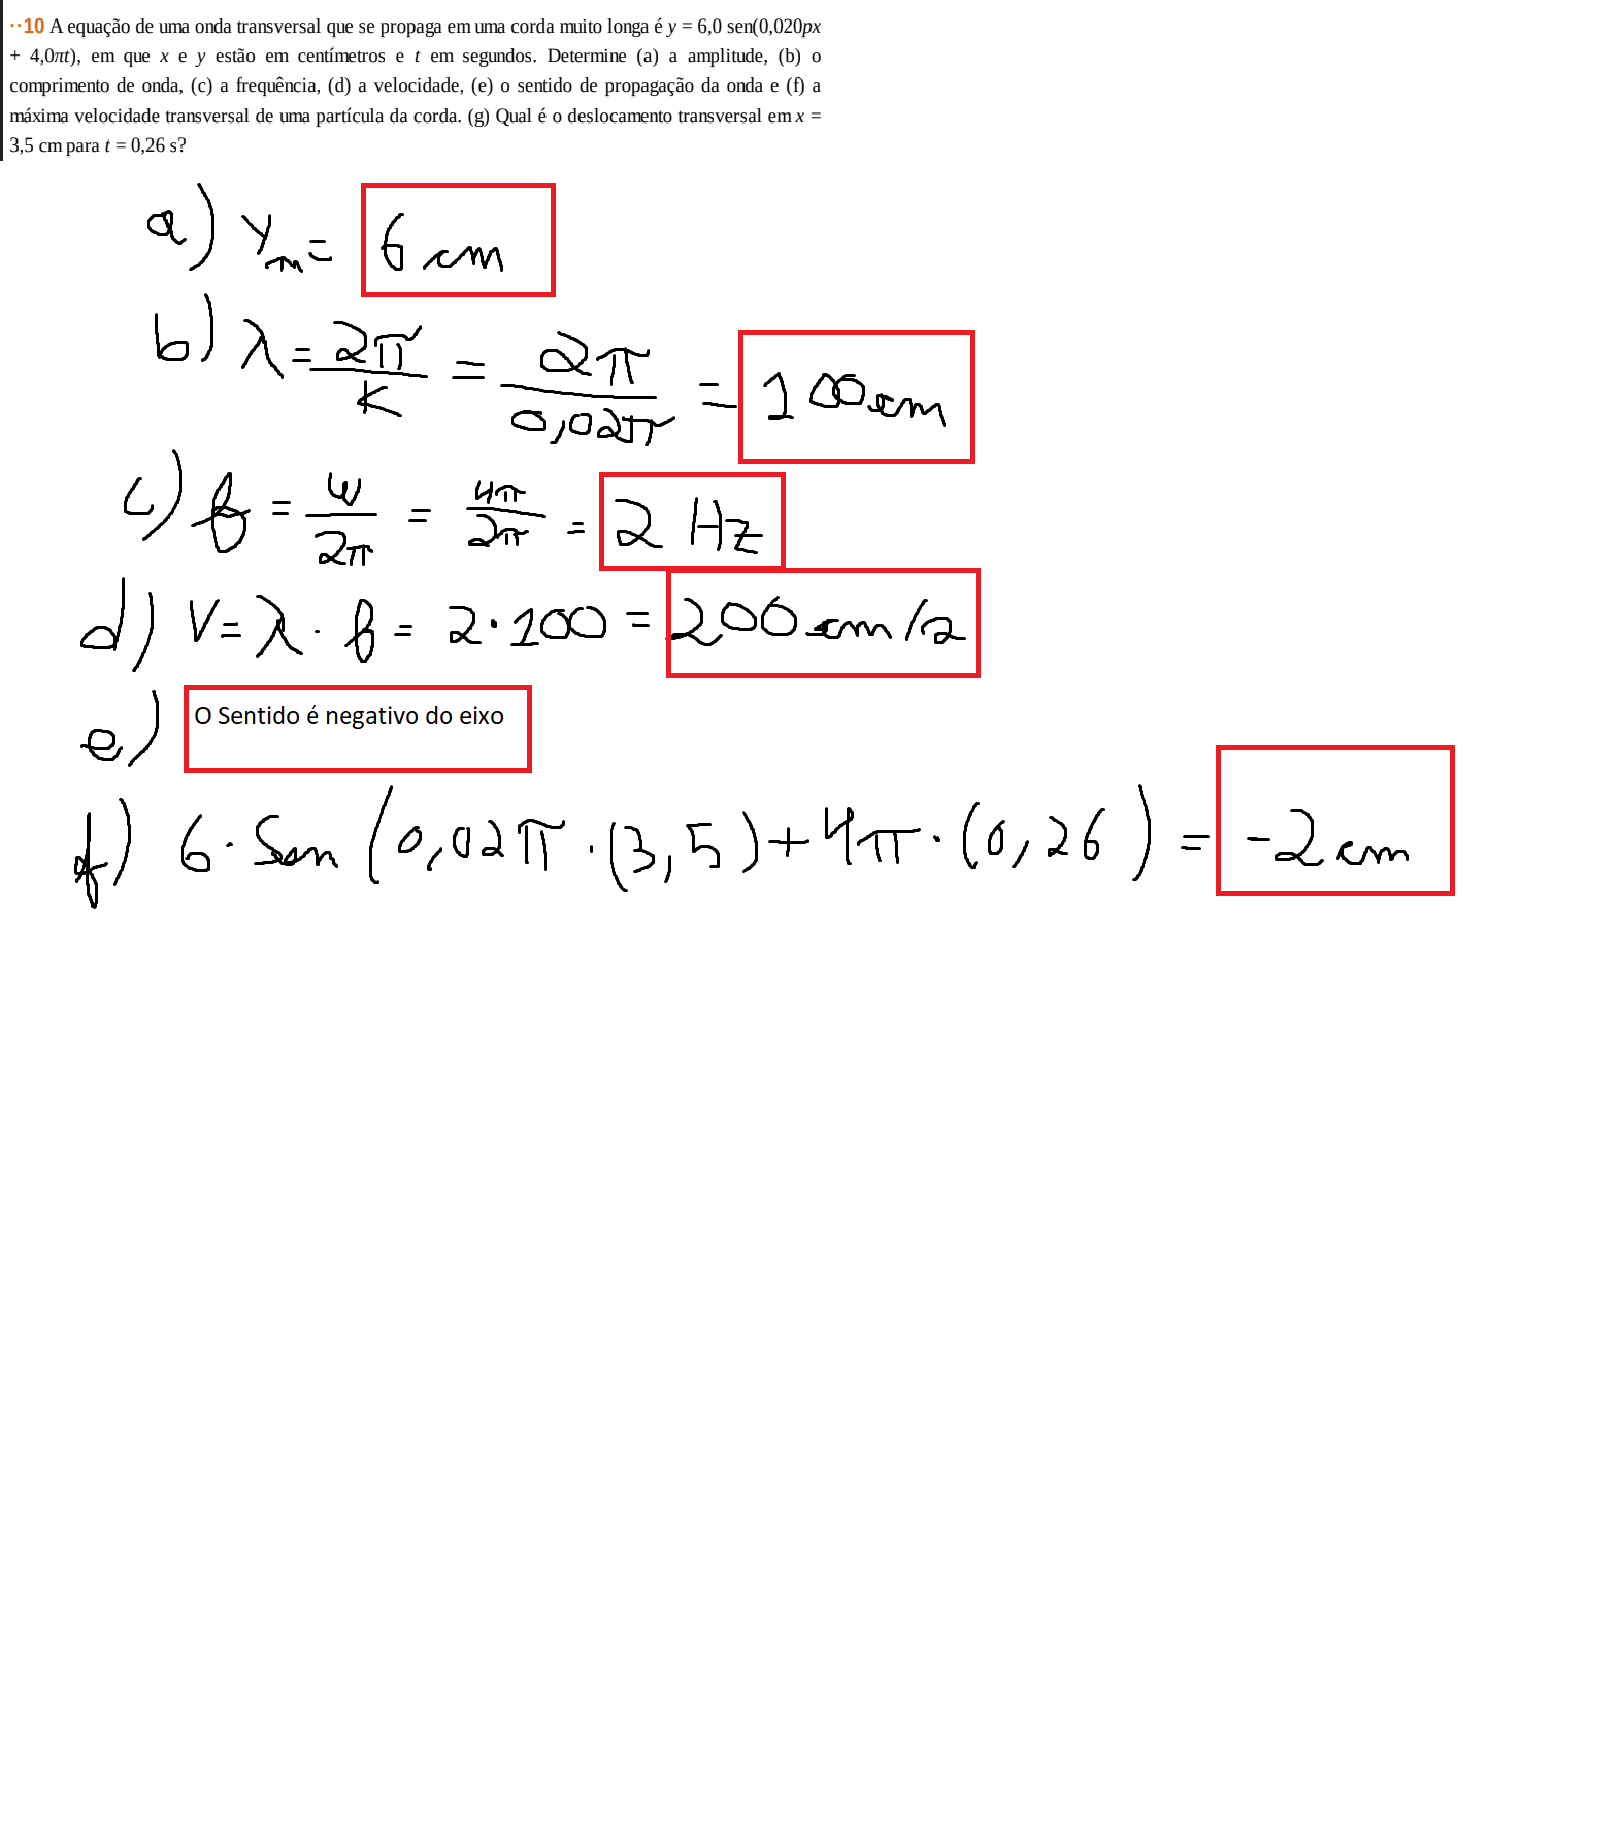 ··10 A equação de uma onda transversal que se propaga em uma corda muito longa é y = 6,0 sen(0,020px
+ 4,0πt), em que x e y estão em centímetros e t em segundos. Determine (a) a amplitude, (b) o
comprimento de onda, (c) a frequência, (d) a velocidade, (e) o sentido de propagação da onda e (f) a
máxima velocidade transversal de uma partícula da corda. (g) Qual é o deslocamento transversal em x =
3,5 cm para t = 0,26 s?
a) ym = 6 cm
b) λ = 2π/K = 2π/0,02π = 100 cm
c) f = w/2π = 4π/2π = 2 Hz
d) V = λ · f = 2 · 100 = 200 cm/s
e) O Sentido é negativo do eixo
f) 6 · Sen (0,02π · (3,5) + 4π · (0,26) = -2 cm